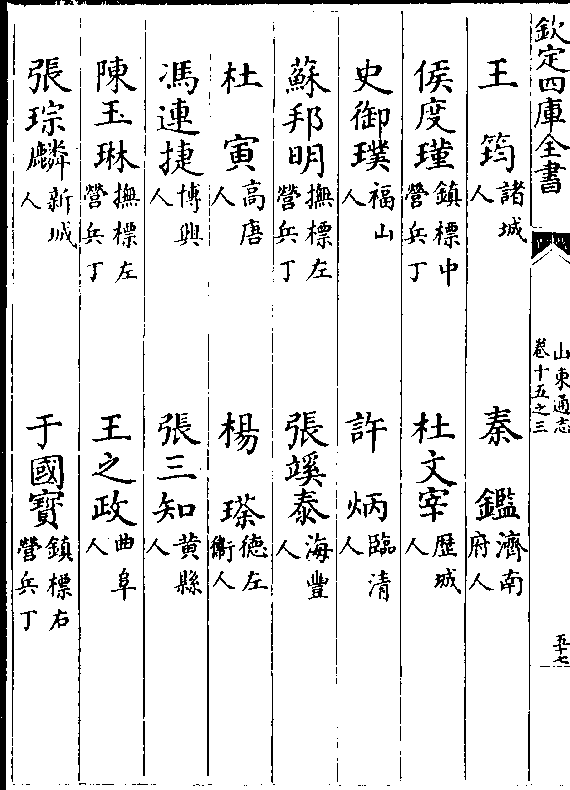 欽定四庫全書
山東通志
卷十五之三
五十七
王筠諸城人
秦鑑濟南府人
侯度瑾鎮標中營兵丁
杜文宰歷城人
史御璞福山人
許炳臨清人
蘇邦明撫標左營兵丁
張竢泰海豐人
杜寅高唐人
楊瑹德左衛人
馮連捷博興人
張三知黃縣人
陳玉琳撫標左營兵丁
王之政曲阜人
張琮麟新城人
于國寶鎮標右營兵丁